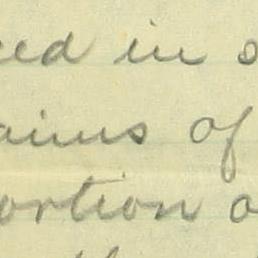 ced in s
ains of
ortion o